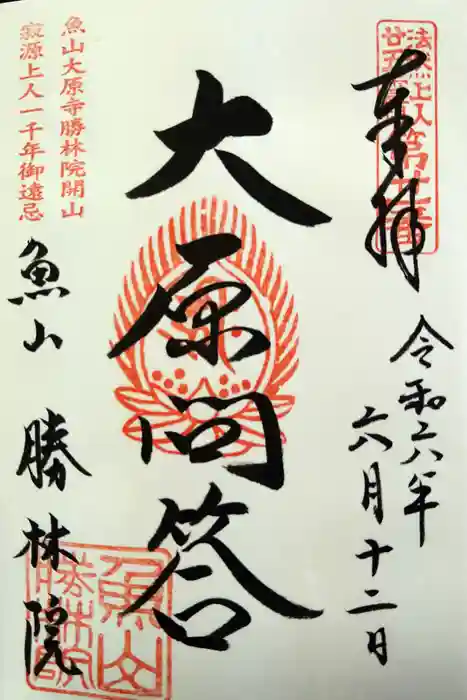 奉拝
法然上人
廿五霊場
令和六年
六月十二日
大原問答
魚山大原寺勝林院開山
寂源上人一千年御遠忌
魚山 勝林院
魚山
勝林院